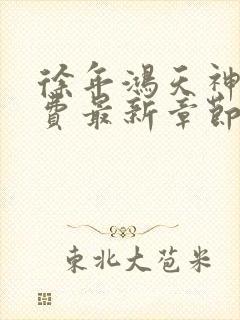 徐年鴻天神
費最新章節
東北大苞米